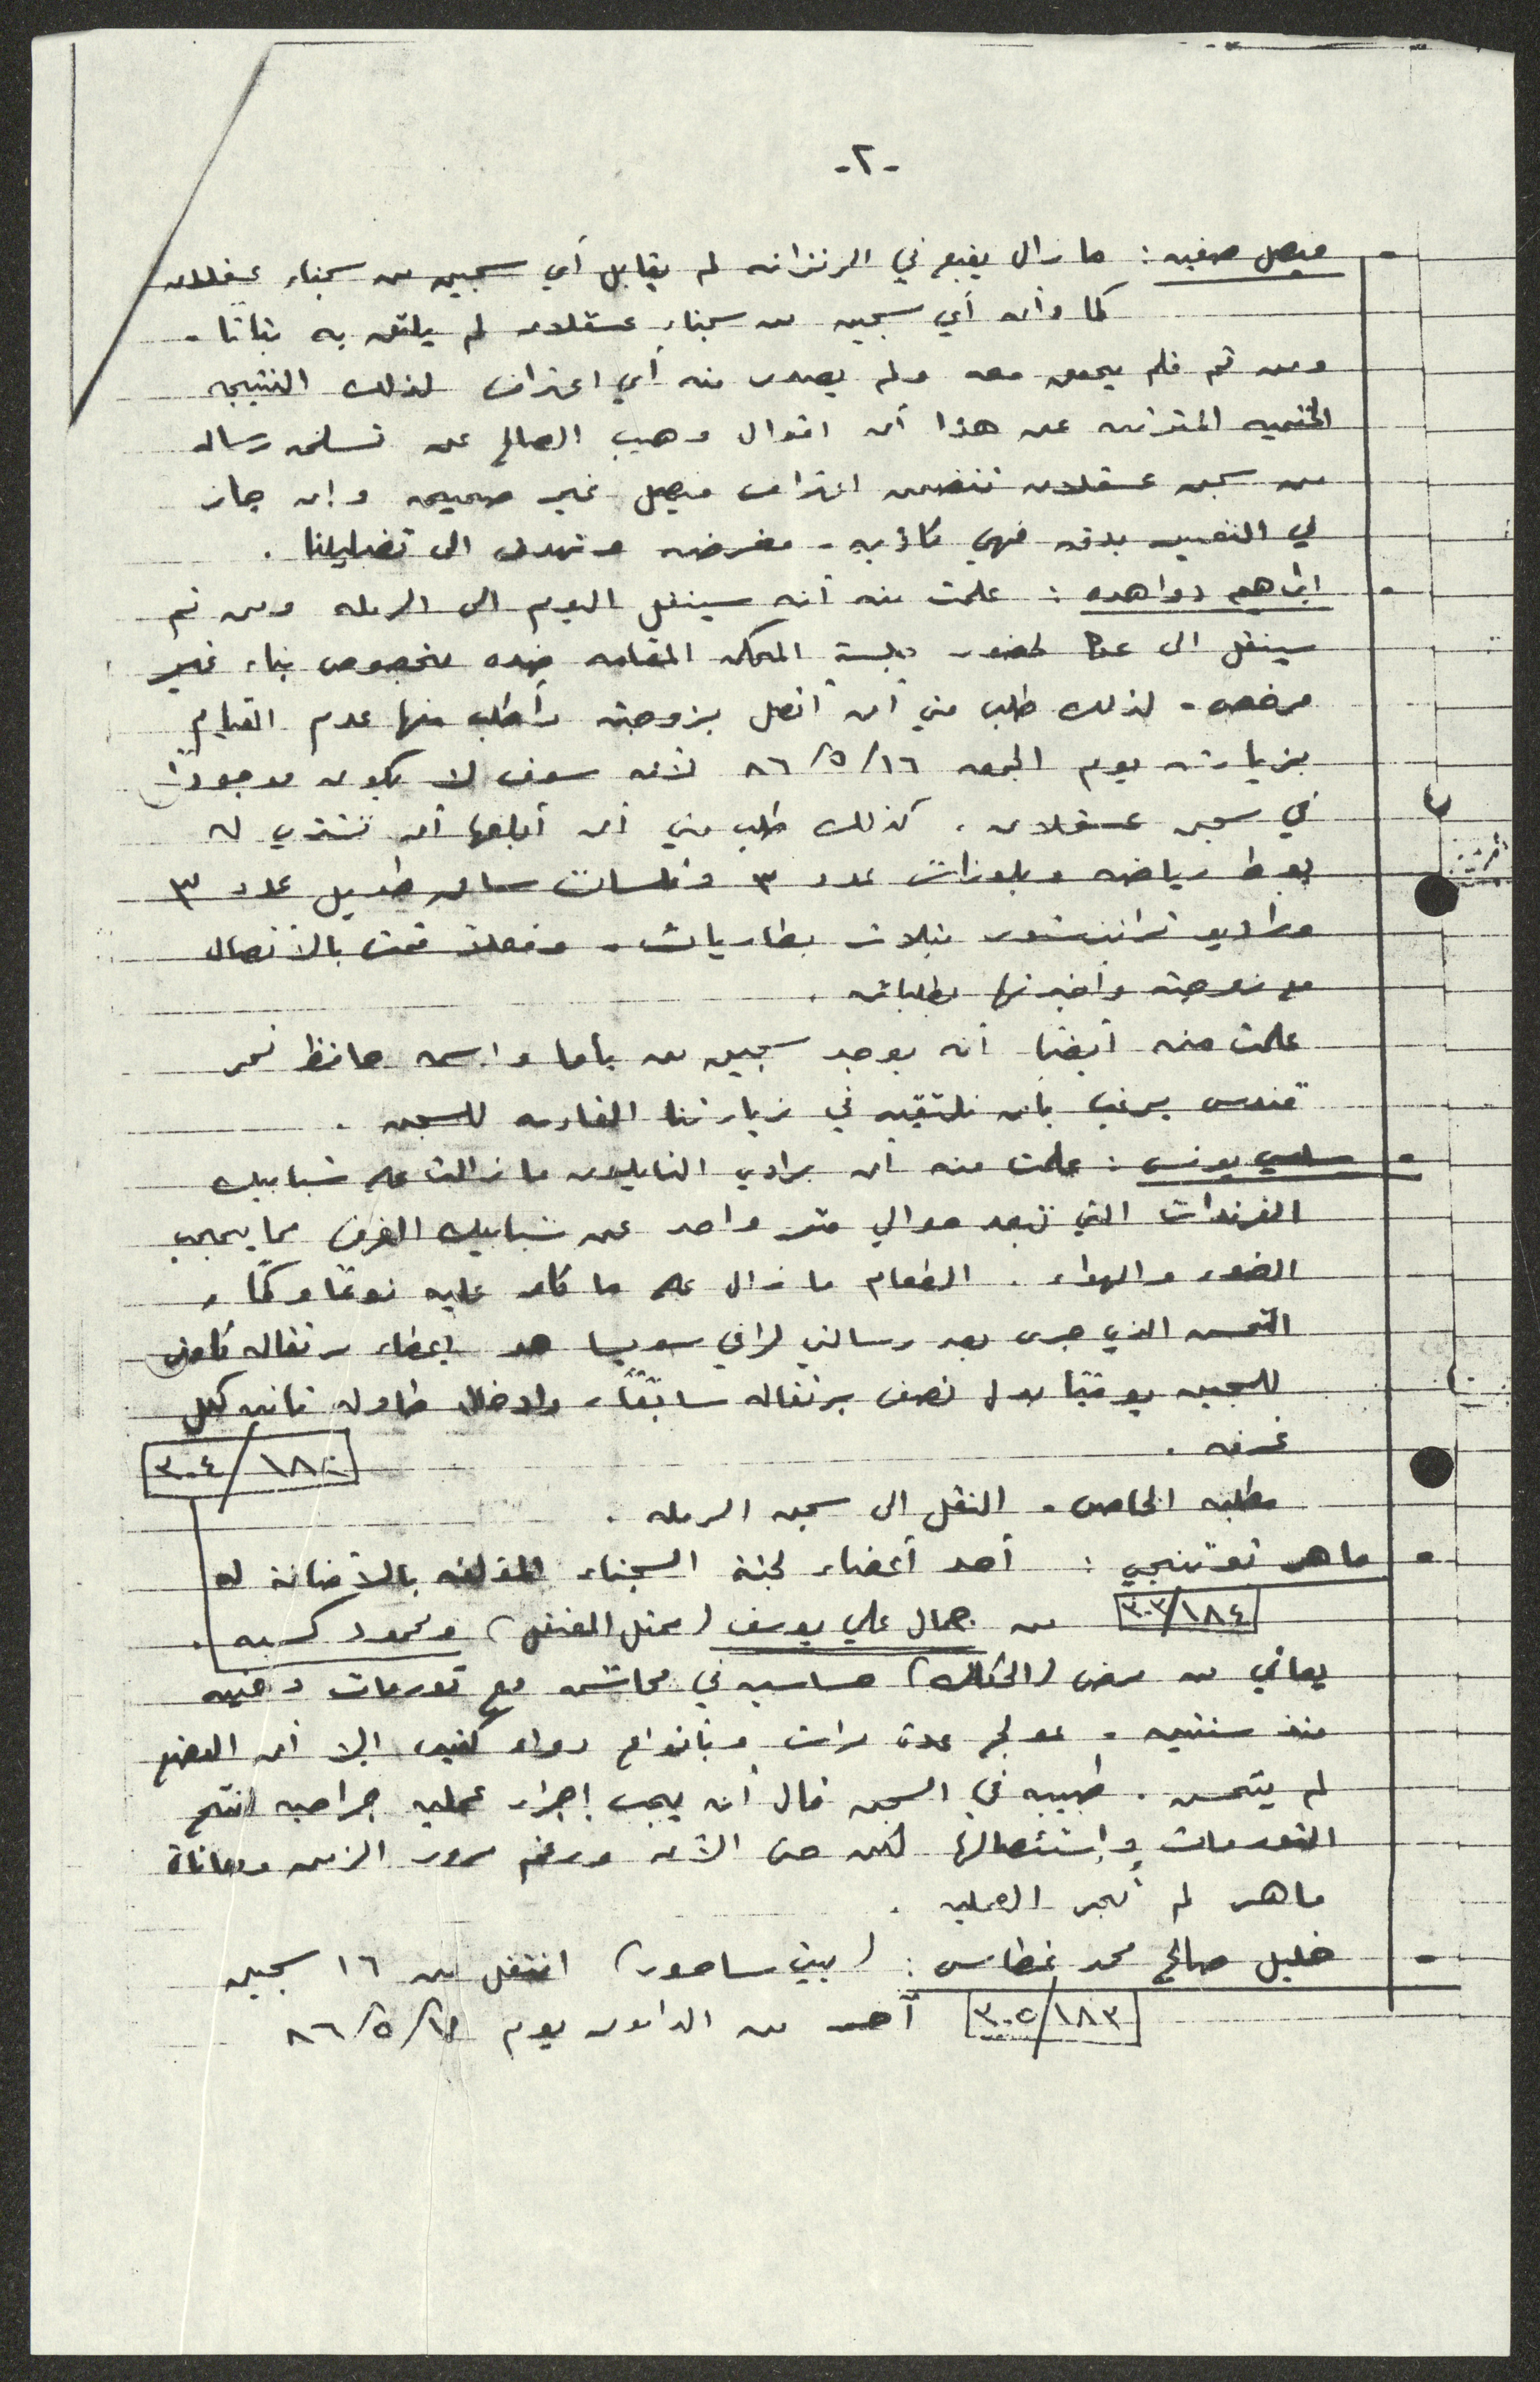 -٢-
- فيصل صفيه : ما زال يقبع في الزنزانه لم يقابل أي سجين من سجناء عسقلان
كما وأن أي سجين من سجناء عسقلان لم يلتق به بتاتا .
ومن ثم فلم يحقق معه ولم يصدر منه أي اعتراف لذلك النتيجه
الحتميه المترتبه على هذا أن اقوال وهيب الصالح عن تسلمه رساله
من سجن عسقلان تتضمن اعتراف فيصل غير صحيحه وإن جاز
لي التعبير بدقه فهي كاذبه - مغرضه وتهدف الى تضليلنا .
- ابراهيم دواهده : علمت منه أنه سينقل اليوم الى الرمله ومن ثم
سينقل الى عكا لحضور جلسة المحكمه المقامه ضده بخصوص بناء غير
مرخص - لذلك طلب مني أن أتصل بزوجته وأطلب منها عدم القيام
بزيارته يوم الجمعه ٨٦/٥/١٦ لأنه سوف لا يكون موجودًا
في سجن عسقلان . كذلك طلب مني أن أبلغها أن تشتري له
بوط رياضه وبلوزات عدد ٣ وكلسات ساق طويل عدد ٣
وراديو ترانزستور بثلاث بطاريات - وفعلًا قمت بالأتصال
مع زوجته وأخبرتها بطلباته .
علمت منه أيضًا أنه يوجد سجين من ياما واسمه حافظ نمر
قندس يرغب بأن نلتقيه في زيارتنا القادمه للسجن .
- سامي يونس : علمت منه أن برادي النايلون ما زالت على شبابيك
الفرندات التي تبعد حوالي متر واحد عن شبابيك الغرف مما يحجب
الضوء والهواء . الطعام ما زال على ما كان عليه نوعًا وكمًا ،
التحسن الذي جرى بعد رسالتي لرافي سويسا هو إعطاء برتقاله كامله
للسجين يوميًا بدل نصف برتقاله سابقًا ، وادخال طاوله ثانيه لكل
غرفه .
٣٠٤/١٨٠
مطلبه الخاص - النقل الى سجن الرمله .
- ماهر توتنجي : أحد أعضاء لجنة السجناء المؤلفه بالأضافة له
٣٠٢/١٨٤ من جمال علي يوسف (ممثل المعتقل) ومحمود كسبه .
يعاني من مرض (الحكاك) حساسيه في محاشمه مع تورمات دهنيه
منذ سنتين - عولج عدة مرات وبأنواع دواء كثير إلا أن الوضع
لم يتحسن . طبيبه في السجن قال أنه يجب إجراء عمليه جراحيه لفتح
التورمات وإستئصالها لكن حتى الآن ورغم مرور الزمن ومعاناة
ماهر لم تجر العمليه .
- خليل صالح محمد غطاس : (بيت ساحور) انتقل من ١٦ سجين
٣٠٥/١٨٣ آخر من الدامون يوم ٨٦/٥/١٥